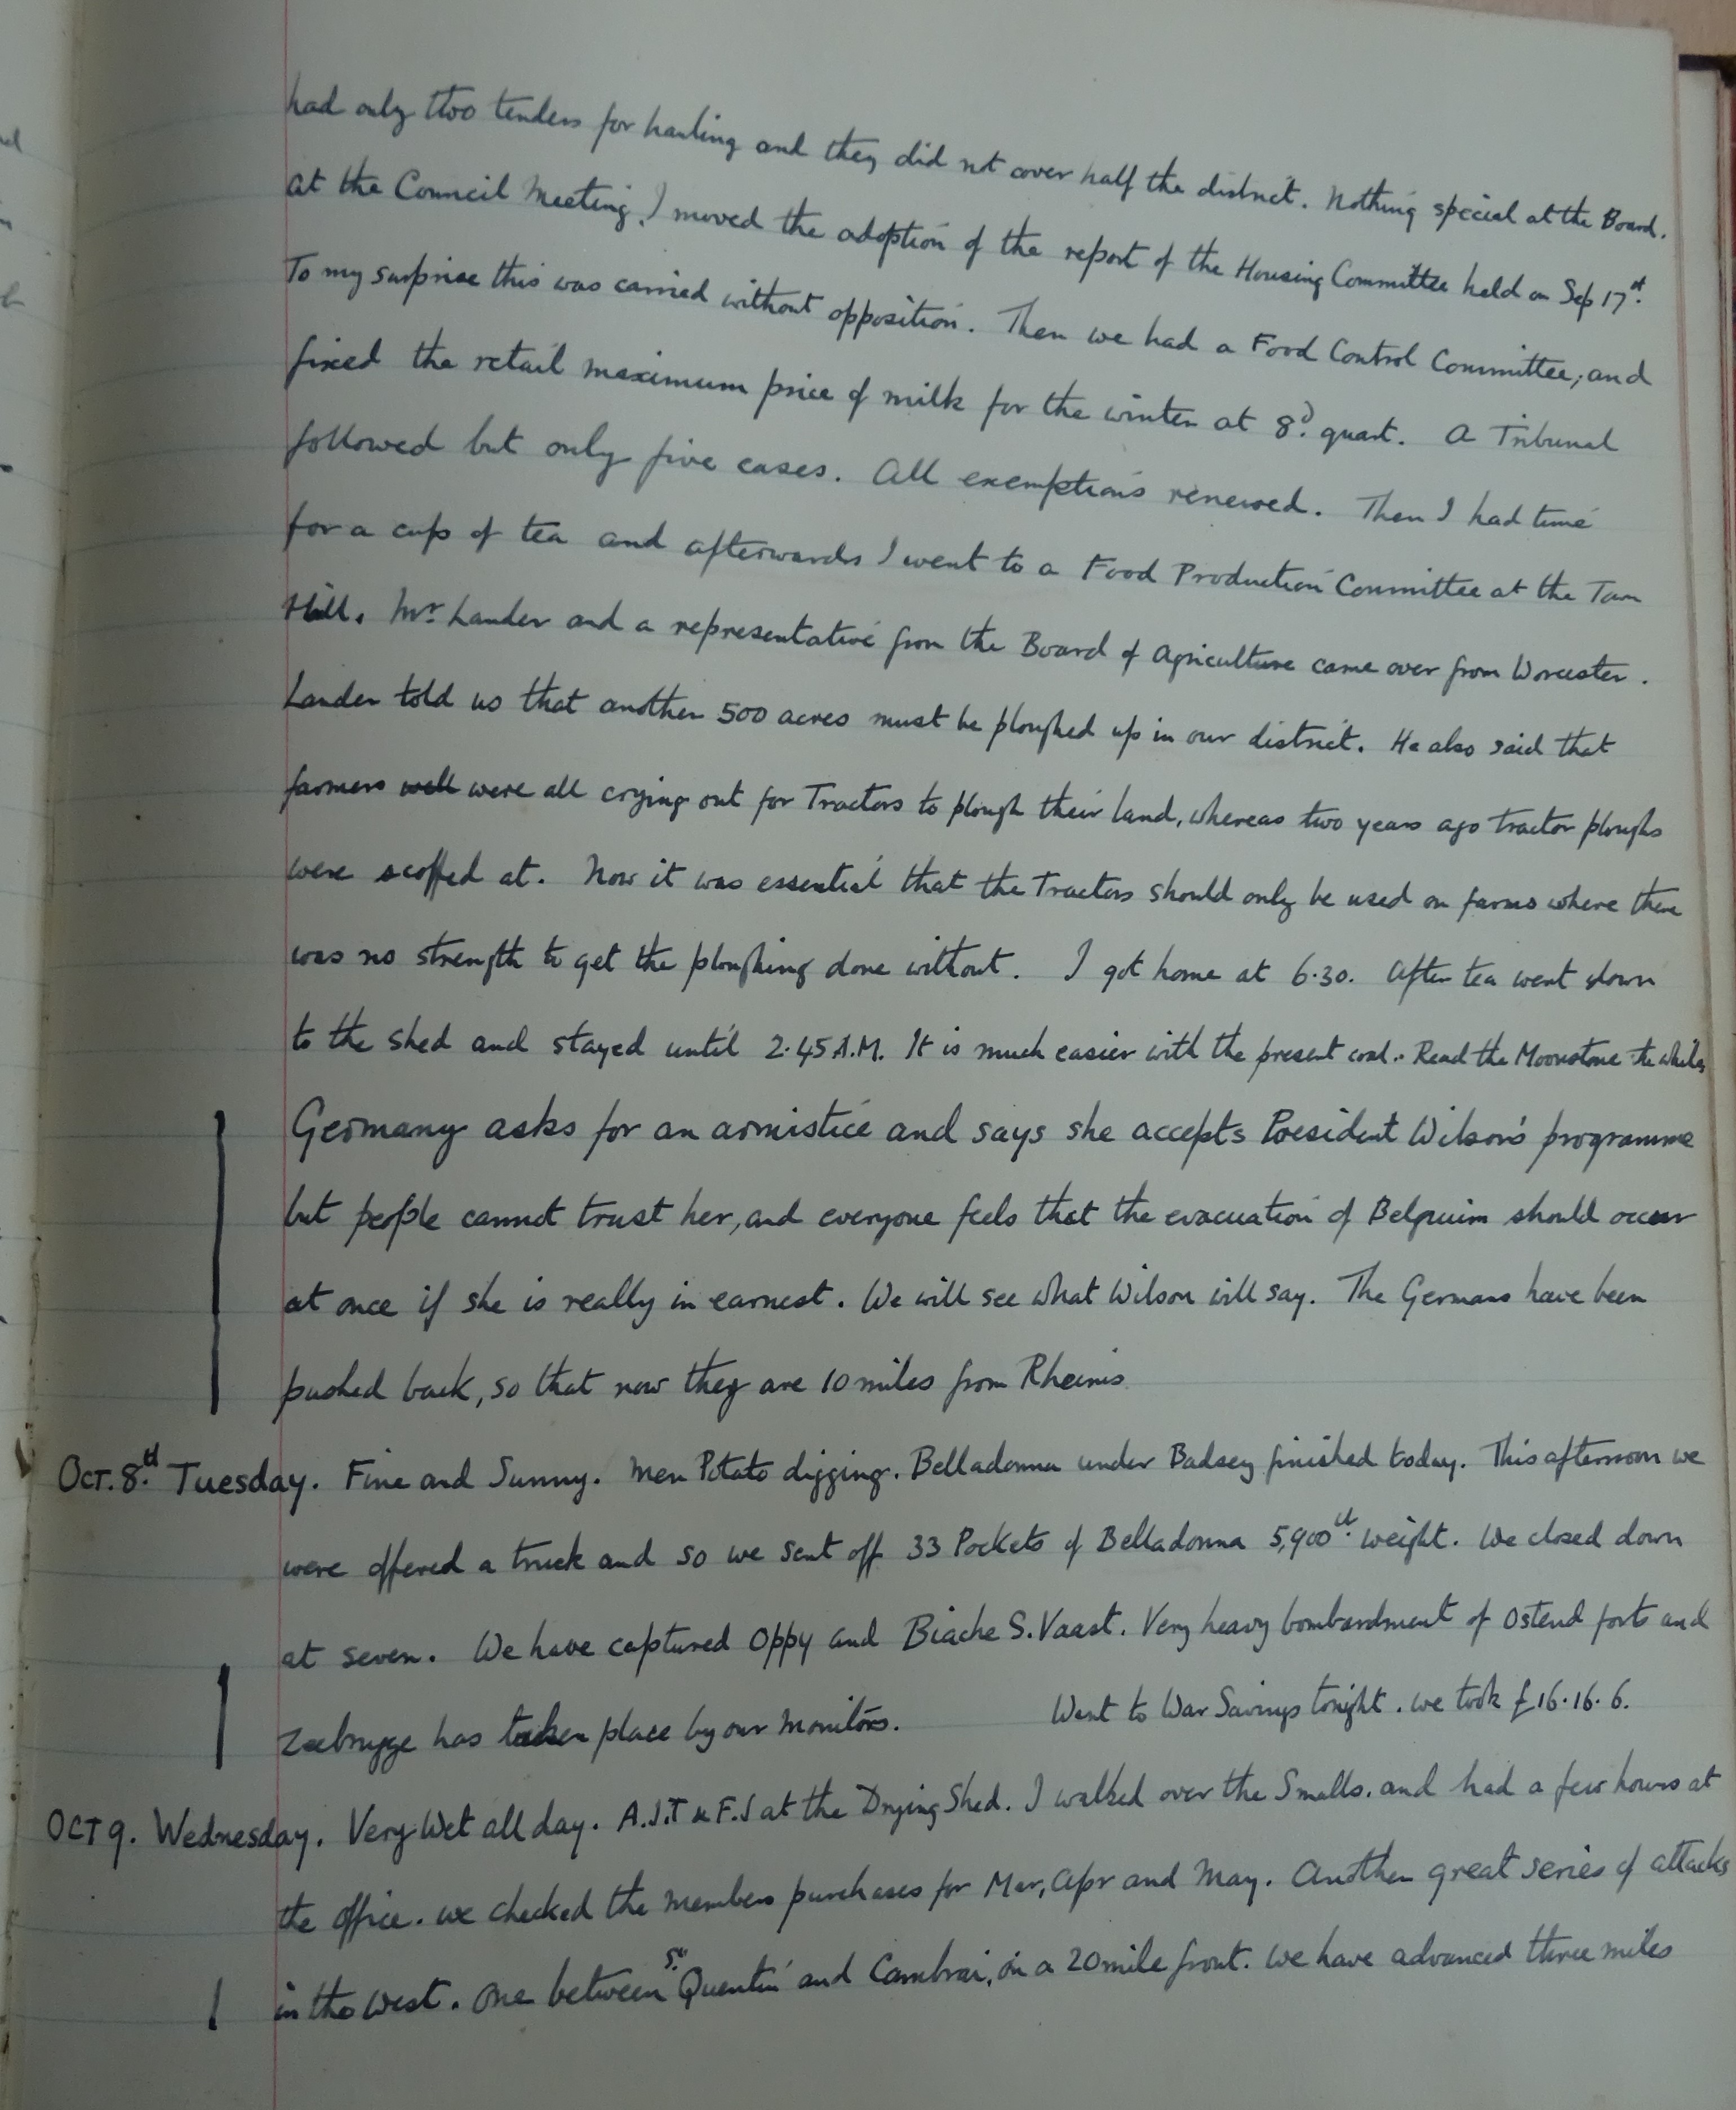 had only two tenders for hauling and they did not cover half the district. Nothing special at the Board.
at the Council Meeting, I moved the adoption of the report of the Housing Committee held on Sep 17th.
To my surprise this was carried without opposition. Then we had a Food Control Committee, and
fixed the retail maximum price of milk for the winter at 8d. quart. A Tribunal
followed but only five cases. All exemptions renewed. Then I had time
for a cup of tea and afterwards I went to a Food Production Committee at the Town
Hall. Mr. Lander and a representative from the Board of Agriculture came over from Worcester.
Lander told us that another 500 acres must be ploughed up in our district. He also said that
farmers well were all crying out for Tractors to plough their land, whereas two years ago tractor ploughs
were scoffed at. Now it was essential that the Tractors should only be used on farms where there
was no strength to get the ploughing done without. I got home at 6.30. After tea went down
to the shed and stayed until 2.45 A.M. It is much easier with the present coal. Read the Moonstone the while.
Germany asks for an armistice and says she accepts President Wilson's programme
but people cannot trust her, and everyone feels that the evacuation of Belgium should occur
at once if she is really in earnest. We will see what Wilson will say. The Germans have been
pushed back, so that now they are 10 miles from Rheims
Oct. 8th Tuesday. Fine and Sunny. Men Potato digging. Belladonna under Badsey finished today. This afternoon we
were offered a truck and so we sent off 33 Pockets of Belladonna 5,900lt. weight. We closed down
at seven. We have captured Oppy and Biache S. Vaast. Very heavy bombardment of Ostend forts and
Zeebrugge has taken place by our Monitors. Went to War Savings tonight. we took £16.16.6.
Oct 9. Wednesday. Very Wet all day. A.J.T & F.J at the Drying Shed. I walked over the Smalls. and had a few hours at
the office. we checked the members purchases for Mar, Apr and May. Another great series of attacks
in the West. One between St. Quentin and Cambrai, on a 20 mile front. We have advanced three miles